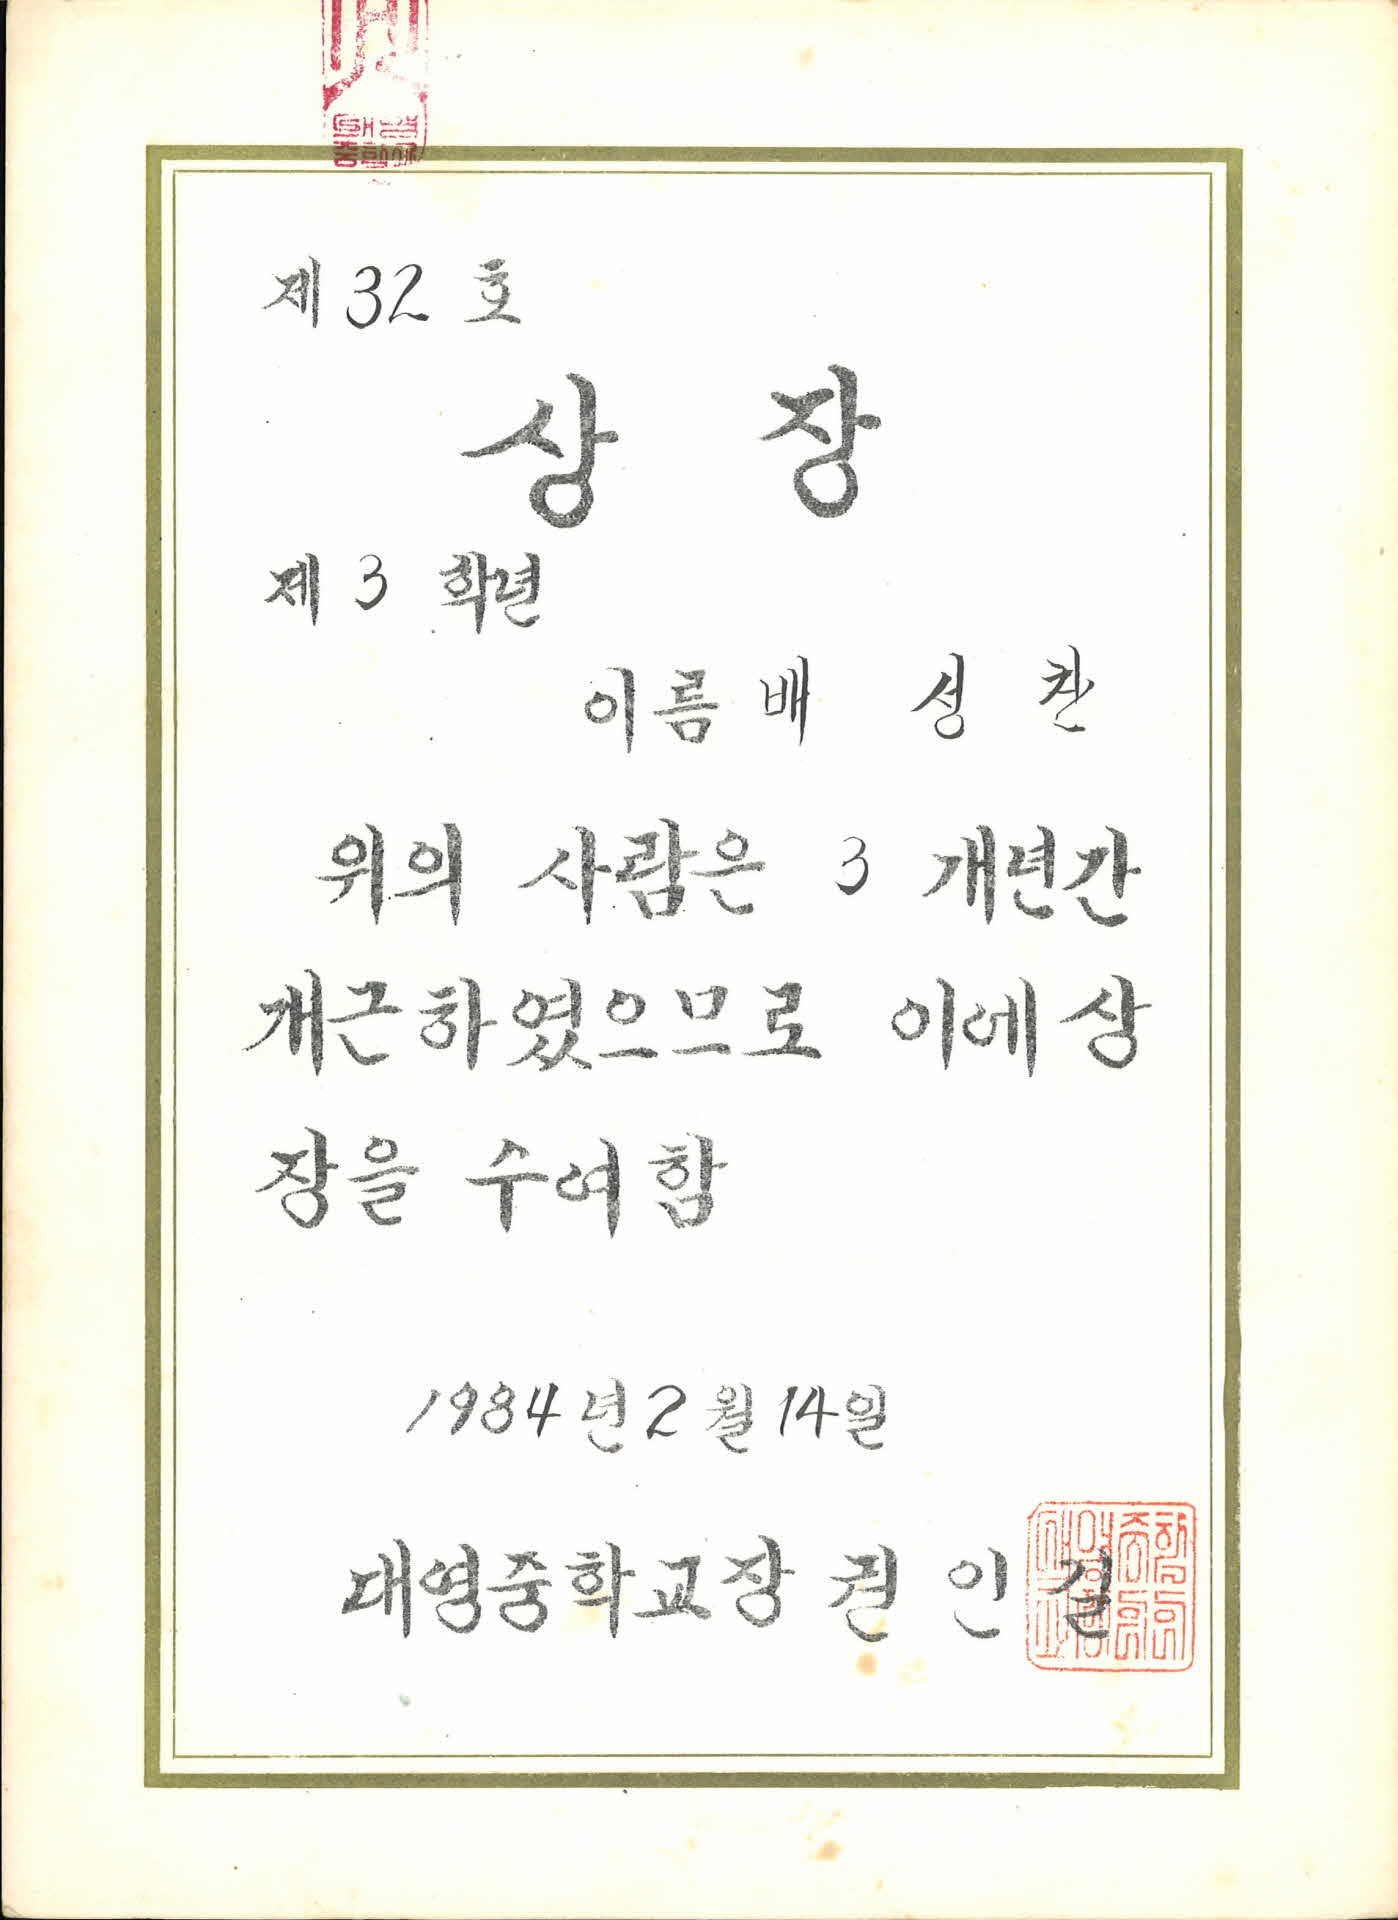 제 32 호
상 장
제 3 학년
이름 배 성 찬
위의 사람은 3 개년간
개근하였으므로 이에 상
장을 수여함
1984년 2월 14일
대영중학교장 권 인 길